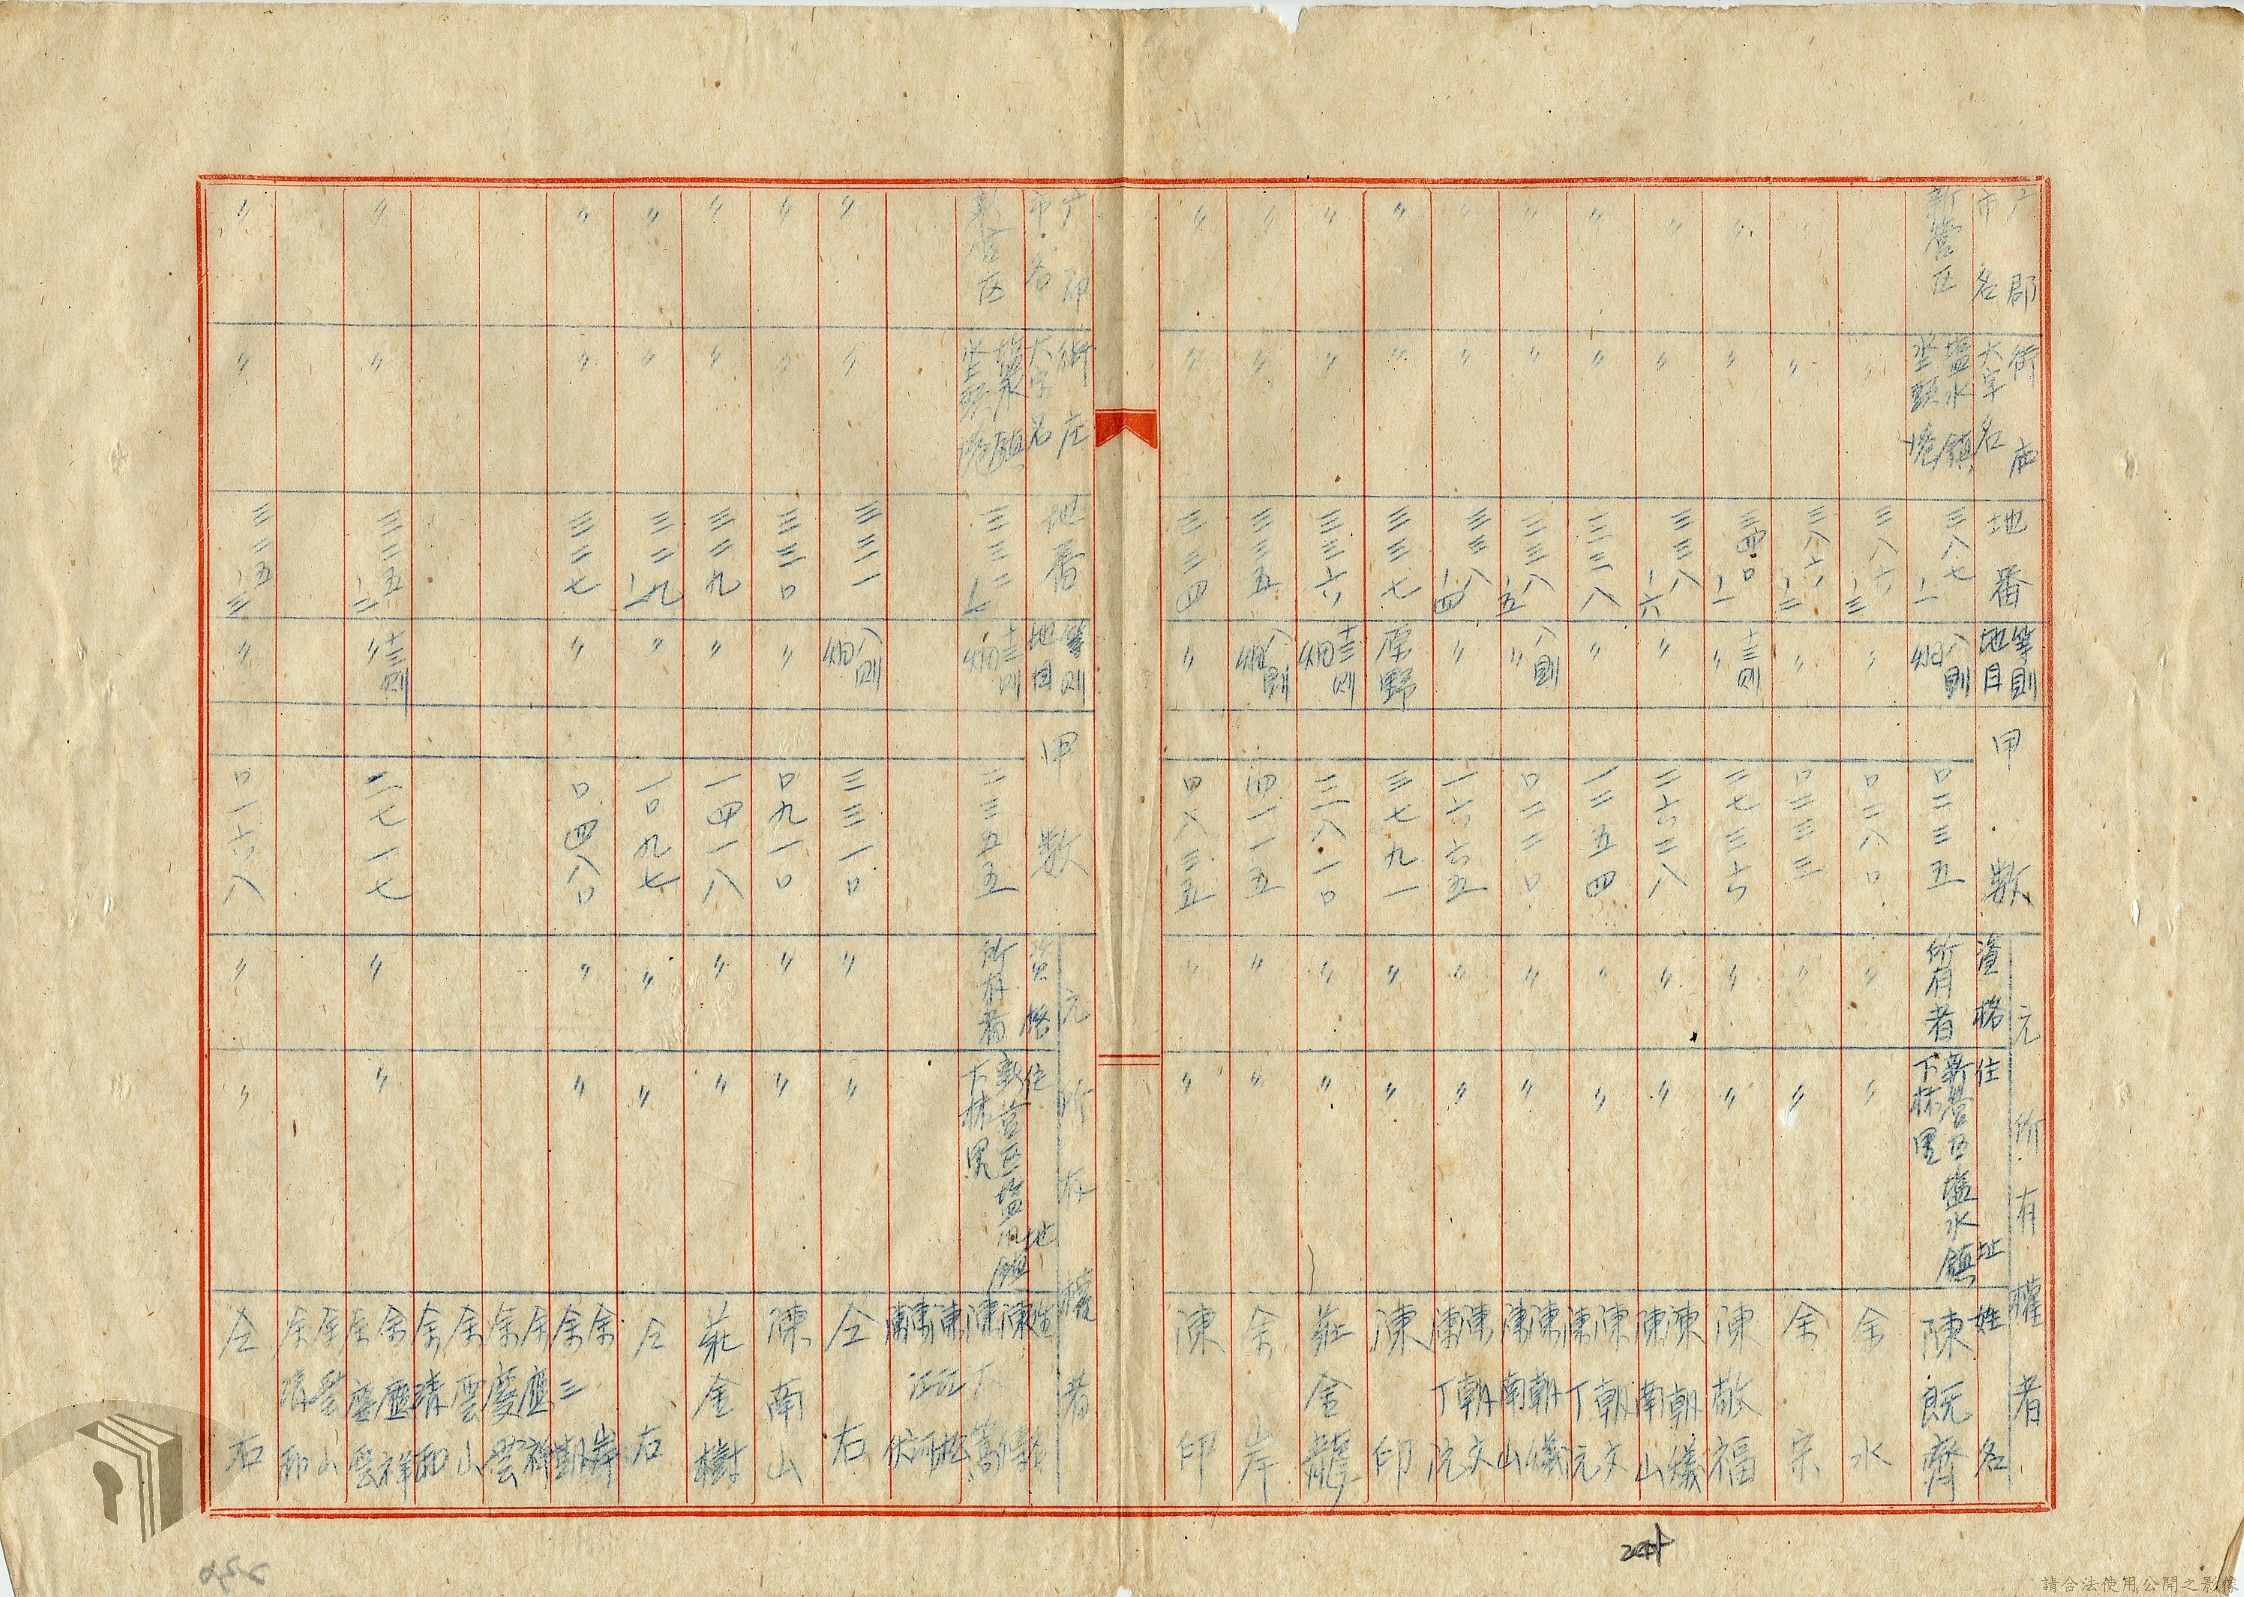 郡
市名
街庄
大字名
地番
等則
地目
甲数
元所有權者
資格
住址
姓名
新營区
塩水鎮
水里頭境
三八七ノ一
八則
畑
〇二三五
所有者
新營区塩水鎮
下林里
陳既齊
〃
〃
三八六ノ三
〃
〇二八〇
〃
〃
余水
〃
三八六ノ二
〃
〇二三三
〃
〃
余宗
〃
〃
三四〇ノ一
十三則
〃
二七三六
〃
〃
陳敬福
〃
〃
三三八ノ六
〃
二六二八
〃
〃
陳朝儀
陳南山
〃
〃
三三八
〃
一二五四
〃
〃
陳朝文
陳丁沅
〃
〃
三三八ノ五
八則
〃
〇二二〇
〃
〃
陳朝儀
陳南山
〃
〃
三三八ノ四
〃
一六六五
〃
〃
陳朝文
陳丁沅
〃
〃
三三七
原野
三七九一
〃
〃
陳印
〃
〃
三三六
十三則
畑
三八一〇
〃
〃
莊金龍
〃
〃
三三五
八則
畑
四一一五
〃
〃
余岸
〃
〃
三三四
〃
四八三五
〃
〃
陳印
郡
市名
街庄
大字名
地番
等則
地目
甲数
元所有權者
資格
住地
姓
新營区
塩水鎮
三三二ノ一
十三則
畑
二三五五
所有者
新營区塩水鎮
下林里
陳
陳大
陳
陳
陳
〃
〃
三三一
八則
畑
三三一〇
〃
〃
仝右
〃
〃
三三〇
〃
〇九一〇
〃
〃
陳南山
〃
〃
三二九
〃
一四一八
〃
〃
莊金樹
〃
〃
三二九ノ一
〃
一〇九七
〃
〃
仝右
〃
〃
三二七
〃
〇四八〇
〃
〃
余岸
余三凱
余應祥
余慶雲
余雲山
余清和
〃
〃
三二五ノ二
十三則
〃
二七一七
〃
〃
余應祥
余慶雲
余雲山
余清和
〃
〃
三二五ノ三
〃
〇一六八
〃
〃
仝右
請合法使用公開之影像